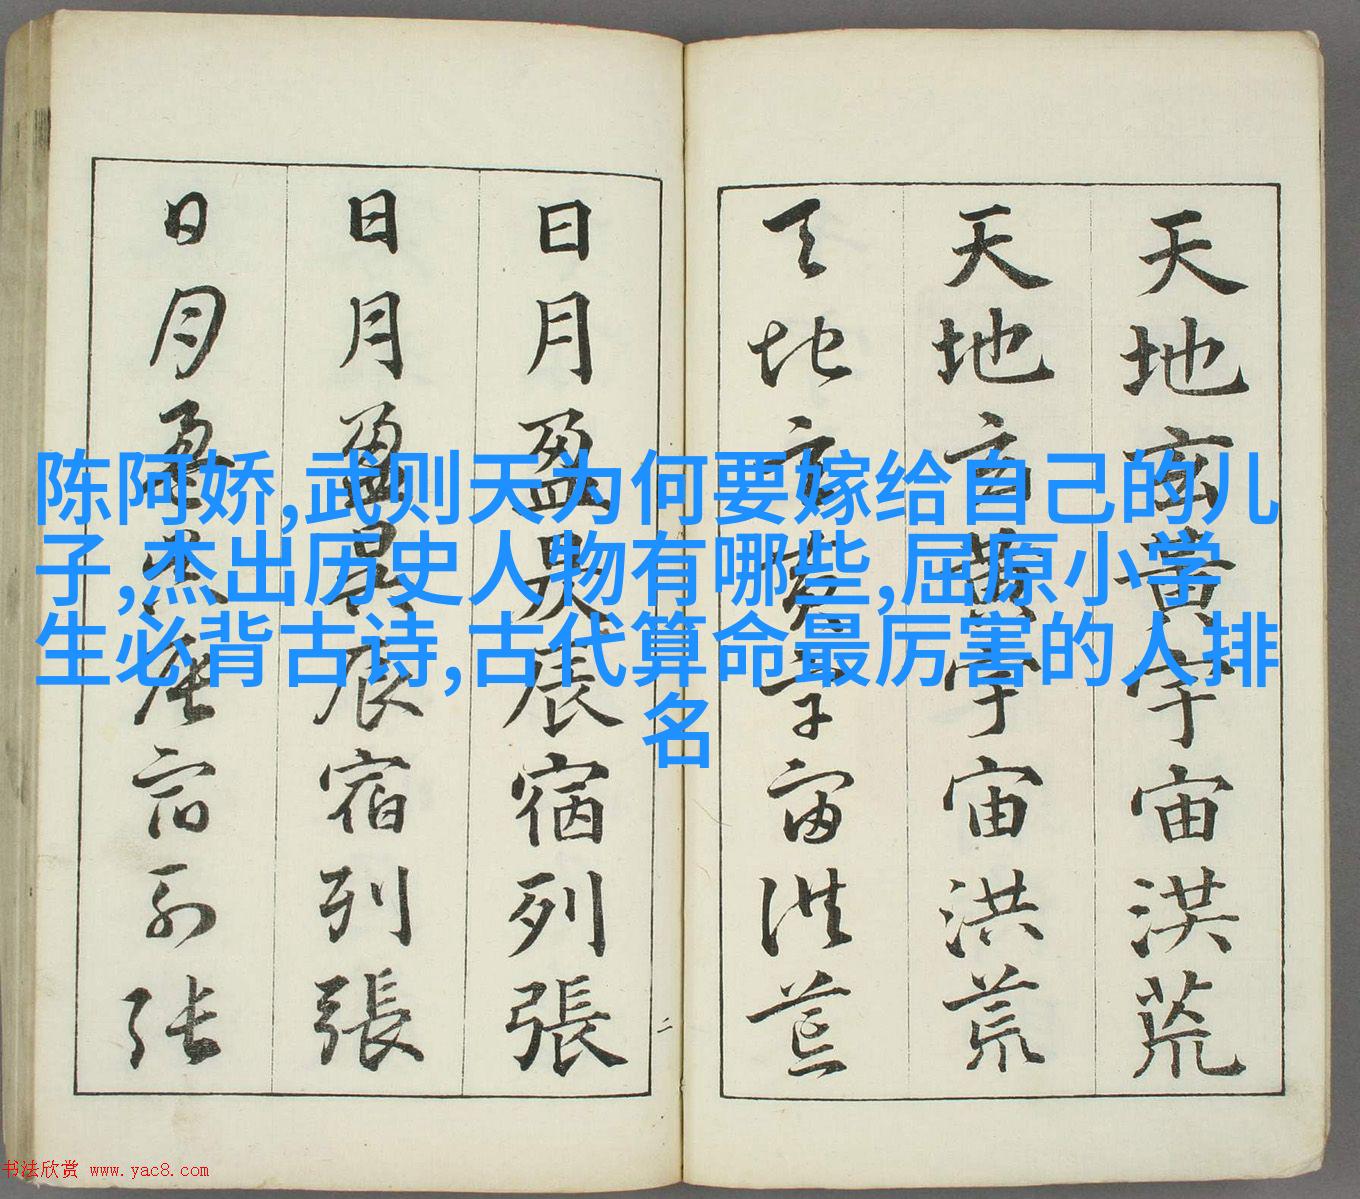 天地玄黄宇宙洪荒
天地玄黄宇宙洪荒
天地玄黄宇宙洪荒
日月盈昃辰宿列張
日月盈昃辰宿列張
日月盈昃辰宿列张
二
陈阿娇,武则天为何要嫁给自己的儿
子,杰出历史人物有哪些,屈原小学
生必背古诗,古代算命最厉害的人排
名
书法欣赏 www.yac8.com